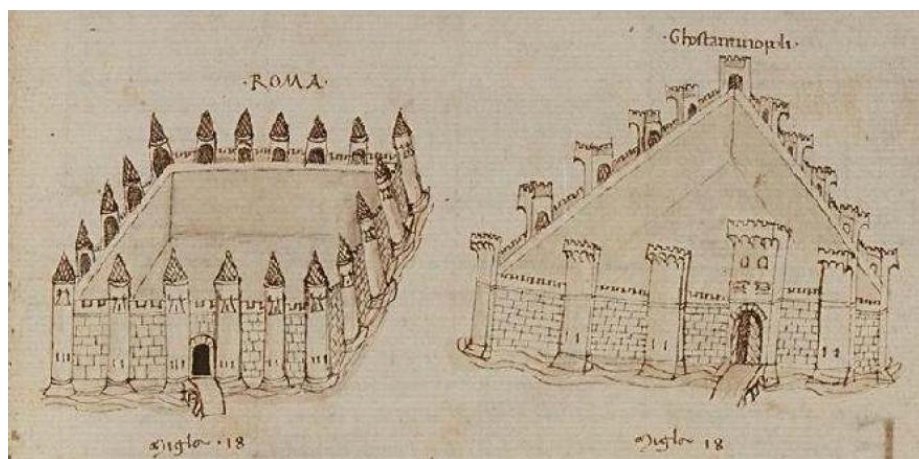 ·ROMA·
·Ghostantinopoli·
miglia·18
miglia 18